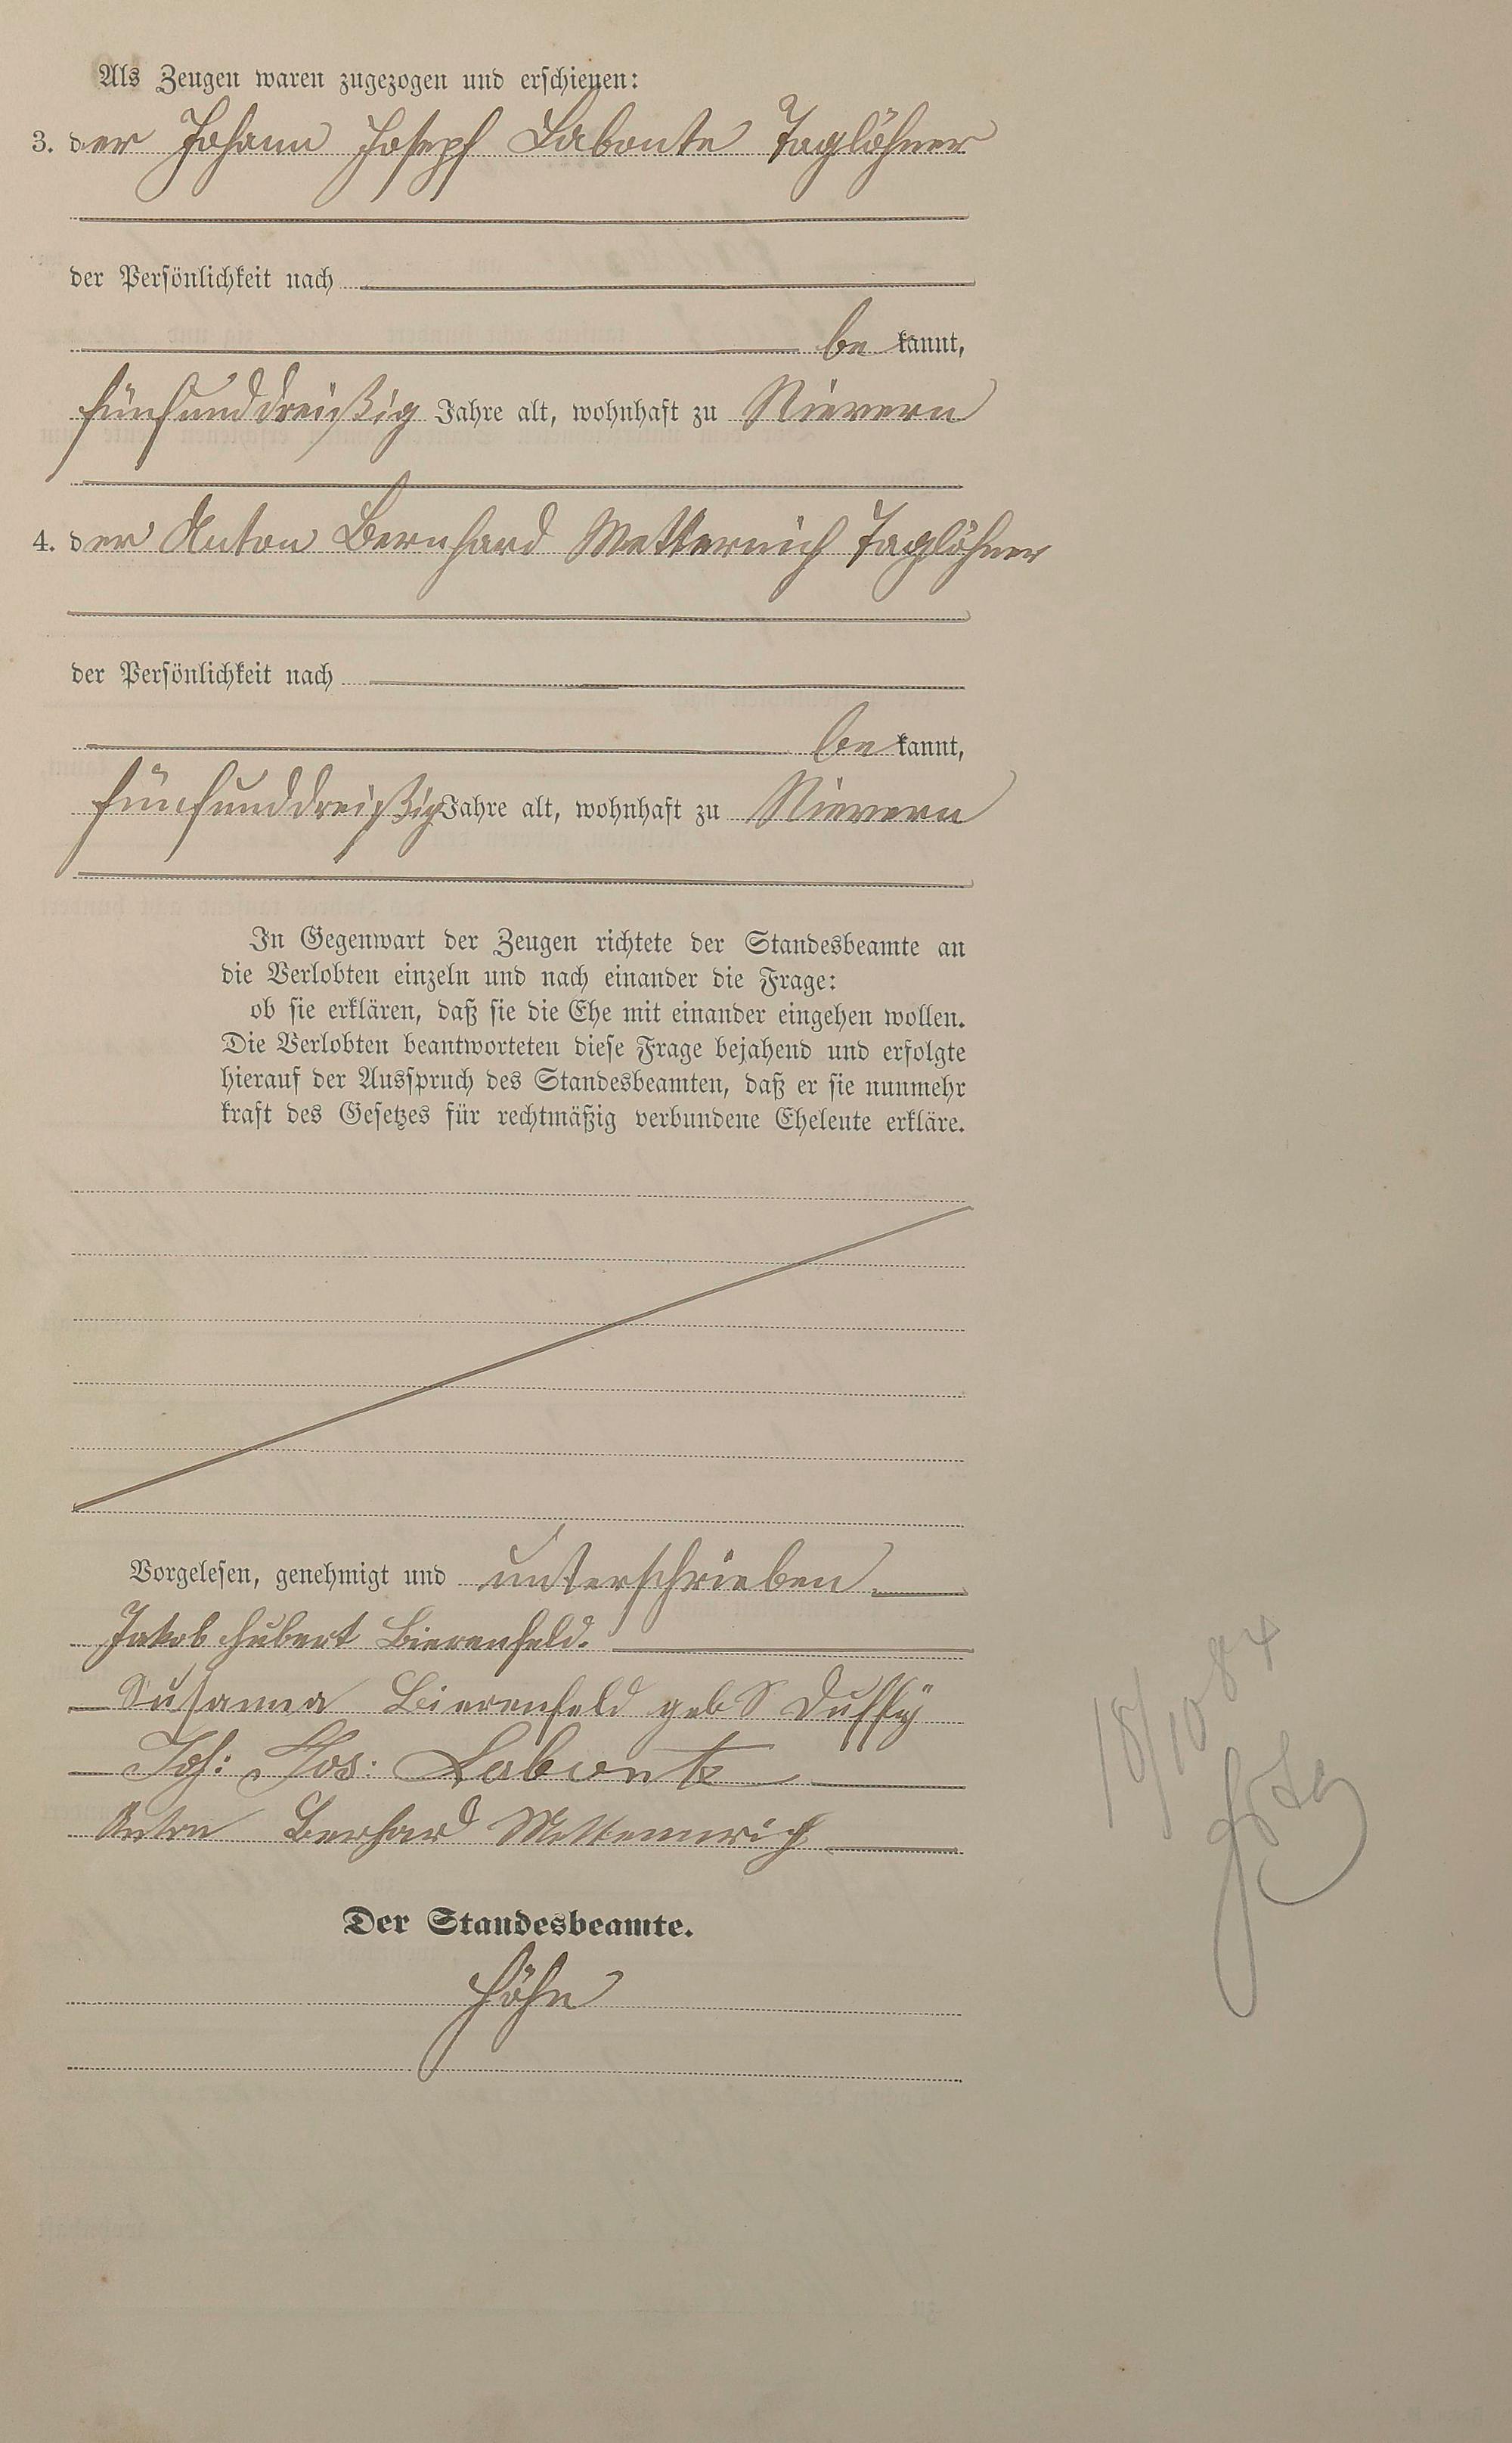 Als Zeugen waren zugezogen und erschienen:
3. der Johann Joseph Labonte Taglöhner
der Persönlichkeit nach
be kannt,
fünfunddreißig Jahre alt, wohnhaft zu Nievern
4. der Anton Bernhard Metternich Taglöhner
der Persönlichkeit nach
be kannt,
fünfunddreißig Jahre alt, wohnhaft zu Nievern
In Gegenwart der Zeugen richtete der Standesbeamte an
die Verlobten einzeln und nach einander die Frage:
ob sie erklären, daß sie die Ehe mit einander eingehen wollen.
Die Verlobten beantworteten diese Frage bejahend und erfolgte
hierauf der Ausspruch des Standesbeamten, daß er sie nunmehr
kraft des Gesetzes für rechtmäßig verbundene Eheleute erkläre.
Vorgelesen, genehmigt und unterschrieben
Jakob Hubert Bierenfeld.
Susanna Bierenfeld geb Duffy
Joh: Jos: Labonte
Anton Berhard Metternich
Der Standesbeamte.
Höhn
18/10 84